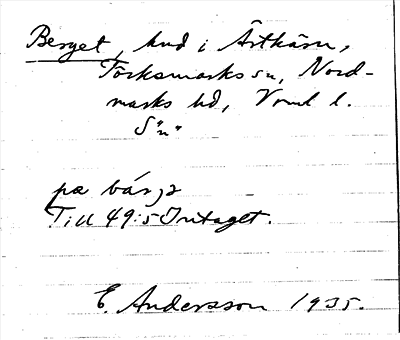 Berget, hud i Ärtkärn,
Törksmarks sn, Nord-
marks hd, Vrml l.
S"n"
pa bárjə
Till 49:5 Intaget.
E. Andersson 1935.